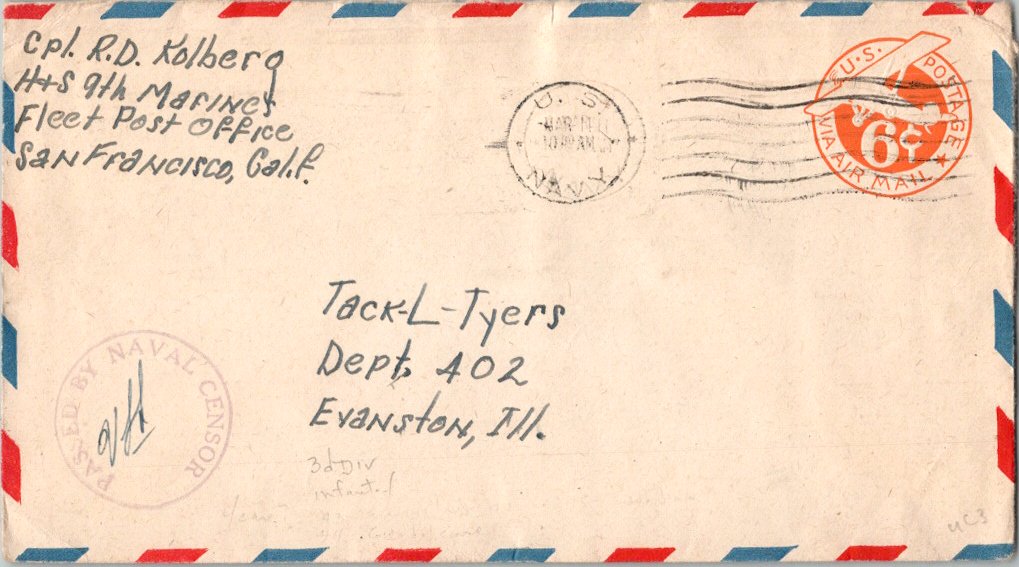 Cpl. R.D. Kolberg
H+S 9th Marines
Fleet Post Office
San Francisco, Calif.
U.S. NAVY
MAR 11
AM
U.S. POSTAGE
6¢
VIA AIR MAIL
Tack-L-Tyers
Dept. 402
Evanston, Ill.
PASSED BY NAVAL CENSOR
3d Div
UC3